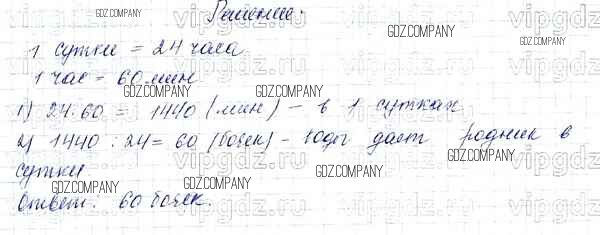 Решение.
1 сутки = 24 часа
1 час = 60 мин
1) 24·60 = 1440 (мин) – в 1 сутках
2) 1440 : 24 = 60 (бочек) – воды даст родник в
сутки
Ответ: 60 бочек.
GDZ.COMPANY
GDZ.COMPANY
GDZ.COMPANY
GDZ.COMPANY
GDZ.COMPANY
GDZ.COMPANY
GDZ.COMPANY
GDZ.COMPANY
vipgdz.ru
vipgdz.ru
vipgdz.ru